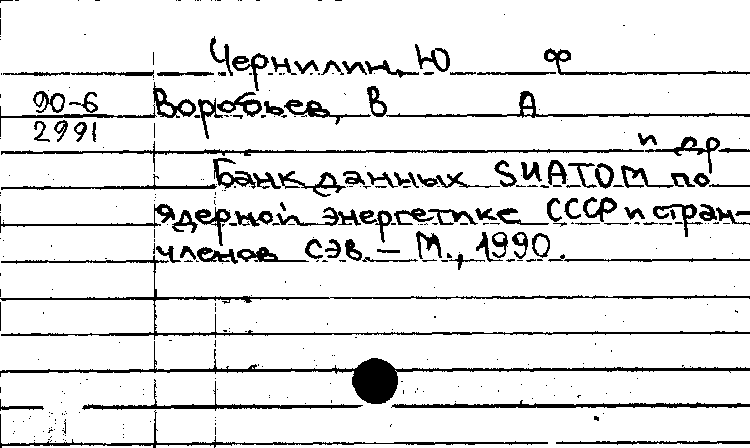 Чернилин, Ю Ф
90-6 Воробьев, В А
2991
и др.
Банк данных SИАТОМ по
ядерной энергетике СССР и стран-
членов СЭВ. – М., 1990.